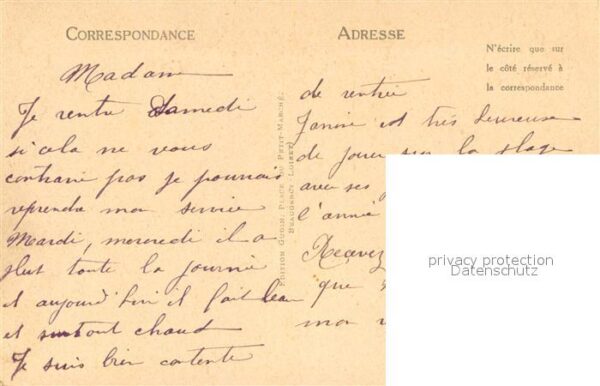 CORRESPONDANCE
Madame
Je rentre Samedi
si cela ne vous
contrarie pas je pourrais
reprendre mon service
Mardi, mercredi il a
plut toute la journée
et aujourd'hui il fait beau
et surtout chaud
Je suis bien contente
EDITION GUGIN, PLACE DU PETIT-MARCHÉ,
BEAUGENCY (LOIRET)
ADRESSE
N'écrire que sur
le côté réservé à
la correspondance
de rentrée
Janine est très heureuse
de jouer sur la plage
avec ses
l'année
Recevez
que
mon
privacy protection
Datenschutz